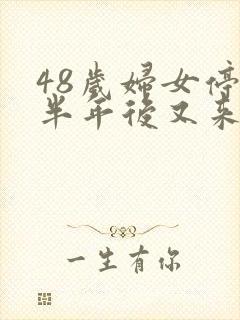 48歲婦女停
半年後又來
一生有你